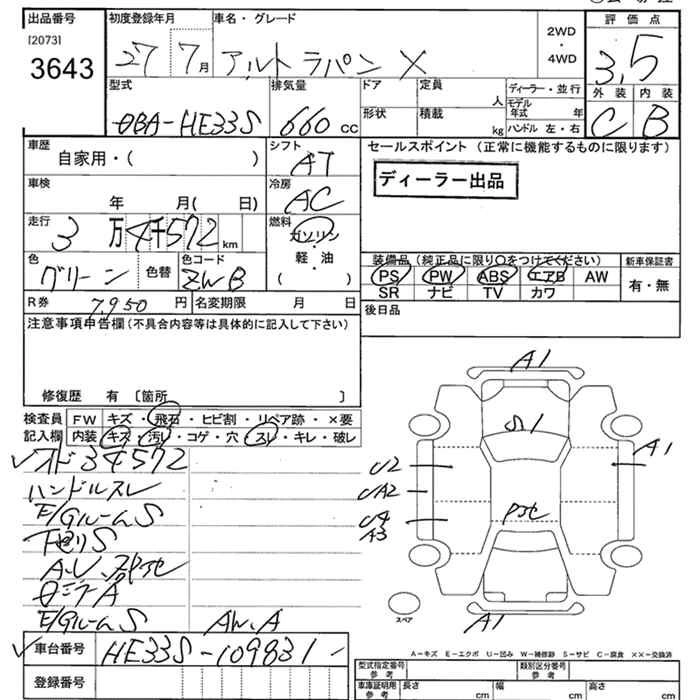 出品番号
[2073]
3643
初度登録年月
27 7月
車名・グレード
アルトラパン X
2WD
・
4WD
評価点
3,5
外装 内装
C B
型式
DBA-HE33S
排気量
660 cc
ドア
形状
定員
人
積載
kg
ディーラー・並行
モデル年式 年
ハンドル 左・右
車歴
自家用・( )
シフト
AT
車検
年 月( 日)
冷房
AC
走行
3万4千572km
燃料
ガソリン
・
軽・油
( )
色
グリーン
色替
色コード
ZWB
R券 7,950 円
名変期限 月 日
セールスポイント (正常に機能するものに限ります)
ディーラー出品
装備品(純正品に限り○をつけてください)
PS PW ABS エアB AW
SR ナビ TV カワ
新車保証書
有・無
後日品
注意事項申告欄(不具合内容等は具体的に記入して下さい)
修復歴 有 〔箇所 〕
検査員
記入欄
FW キズ・飛石・ヒビ割・リペア跡・×要
内装 キズ・汚レ・コゲ・穴・スレ・キレ・破レ
オド34572
ハンドルスレ
E/GルームS
下廻りS
A
E/GルームS AW、A
車台番号 HE33S-109831-
登録番号
A1
A1
U2
UA2
U4
A3
A1
スペア
A-キズ E-エクボ U-凹み W-補修跡 S-サビ C-腐食 ××-交換済
型式指定番号
参考
類別区分番号
参考
車庫証明用
参考
長さ cm
幅 cm
高さ cm